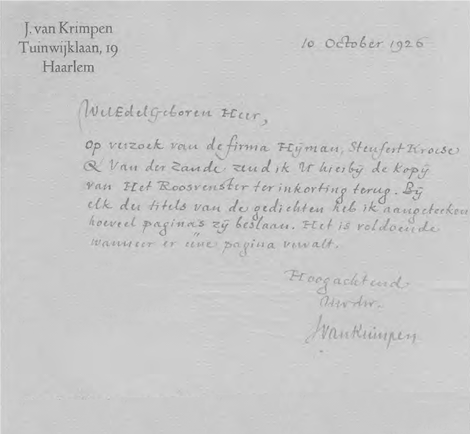 J. van Krimpen
Tuinwijklaan, 19
Haarlem
10 October 1926
WelEdelGeboren Heer,
op verzoek van de firma Hijman, Stenfert Kroese
& Van der Zande zend ik U hierbij de kopij
van Het Roosvenster ter inkorting terug. Bij
elk der titels van de gedichten heb ik aangeteekend
hoeveel pagina's zij beslaan. Het is voldoende
wanneer er ééne pagina vervalt.
Hoogachtend
Uw dw.
J van Krimpen